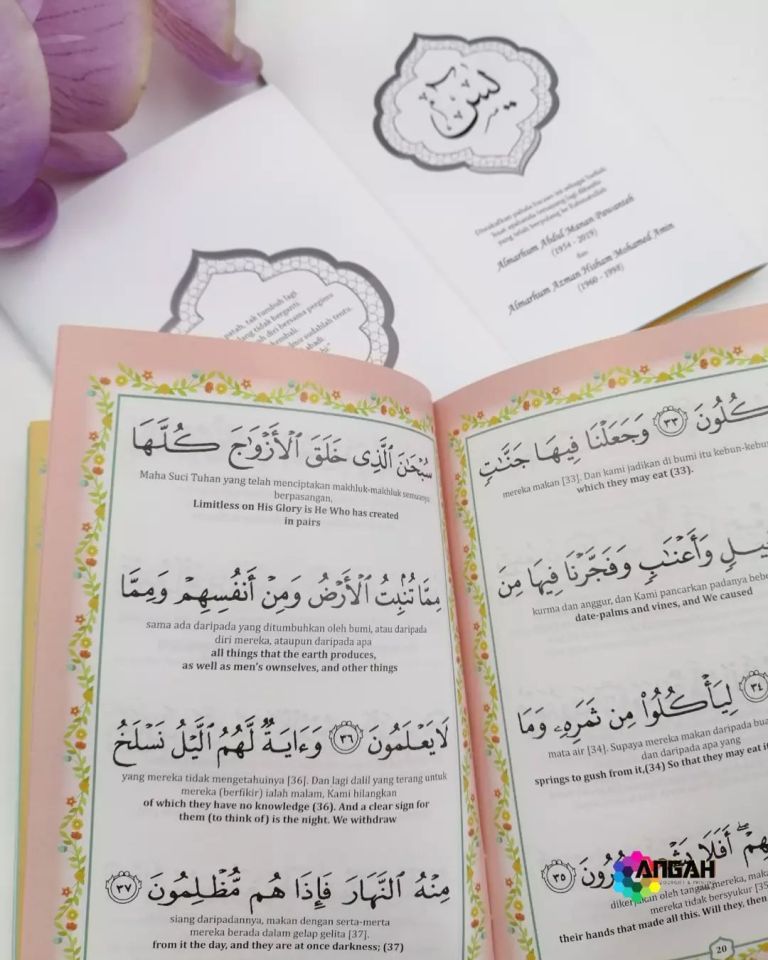 يس
pahala bacaan ini sebagai hadiah
buat ayahanda tersayang lagi
yang telah berpulang ke Rahmatullah
Almarhum Abdul Manan Pawanteh
(1954 - 2019)
dan
Almarhum Azman Hisham Mohamed Amin
(1960 - 1998)
patah, tak tumbuh lagi
tidak berganti
diri bersama pergimu
kembali.
sudahlah tentu,
abadi.
وَجَعَلْنَا فِيهَا جَنَّٰتٍ ٣٣
mereka makan [33]. Dan kami jadikan di bumi itu
which they may eat (33).
وَأَعْنَٰبٍ وَفَجَّرْنَا فِيهَا مِنَ
kurma dan anggur, dan Kami pancarkan padanya
date-palms and vines, and We caused
٣٤ لِيَأْكُلُوا۟ مِن ثَمَرِهِۦ وَمَا
mata air [34]. Supaya mereka makan daripada
dan daripada apa yang
springs to gush from it,(34) So that they may eat
أَفَلَا ٣٥
oleh tangan mereka,
mereka tidak bersyukur [35
their hands that made all this. Will they, then
20
ANGAH
سُبْحَٰنَ ٱلَّذِى خَلَقَ ٱلْأَزْوَٰجَ كُلَّهَا
Maha Suci Tuhan yang telah menciptakan makhluk-makhluk semuanya
berpasangan,
Limitless on His Glory is He Who has created
in pairs
مِمَّا تُنۢبِتُ ٱلْأَرْضُ وَمِنْ أَنفُسِهِمْ وَمِمَّا
sama ada daripada yang ditumbuhkan oleh bumi, atau daripada
diri mereka, ataupun daripada apa
all things that the earth produces,
as well as men's ownselves, and other things
لَا يَعْلَمُونَ ٣٦ وَءَايَةٌ لَّهُمُ ٱلَّيْلُ نَسْلَخُ
yang mereka tidak mengetahuinya [36]. Dan lagi dalil yang terang untuk
mereka (berfikir) ialah malam, Kami hilangkan
of which they have no knowledge (36). And a clear sign for
them (to think of) is the night. We withdraw
مِنْهُ ٱلنَّهَارَ فَإِذَا هُم مُّظْلِمُونَ ٣٧
siang daripadannya, makan dengan serta-merta
mereka berada dalam gelap gelita [37].
from it the day, and they are at once darkness; (37)